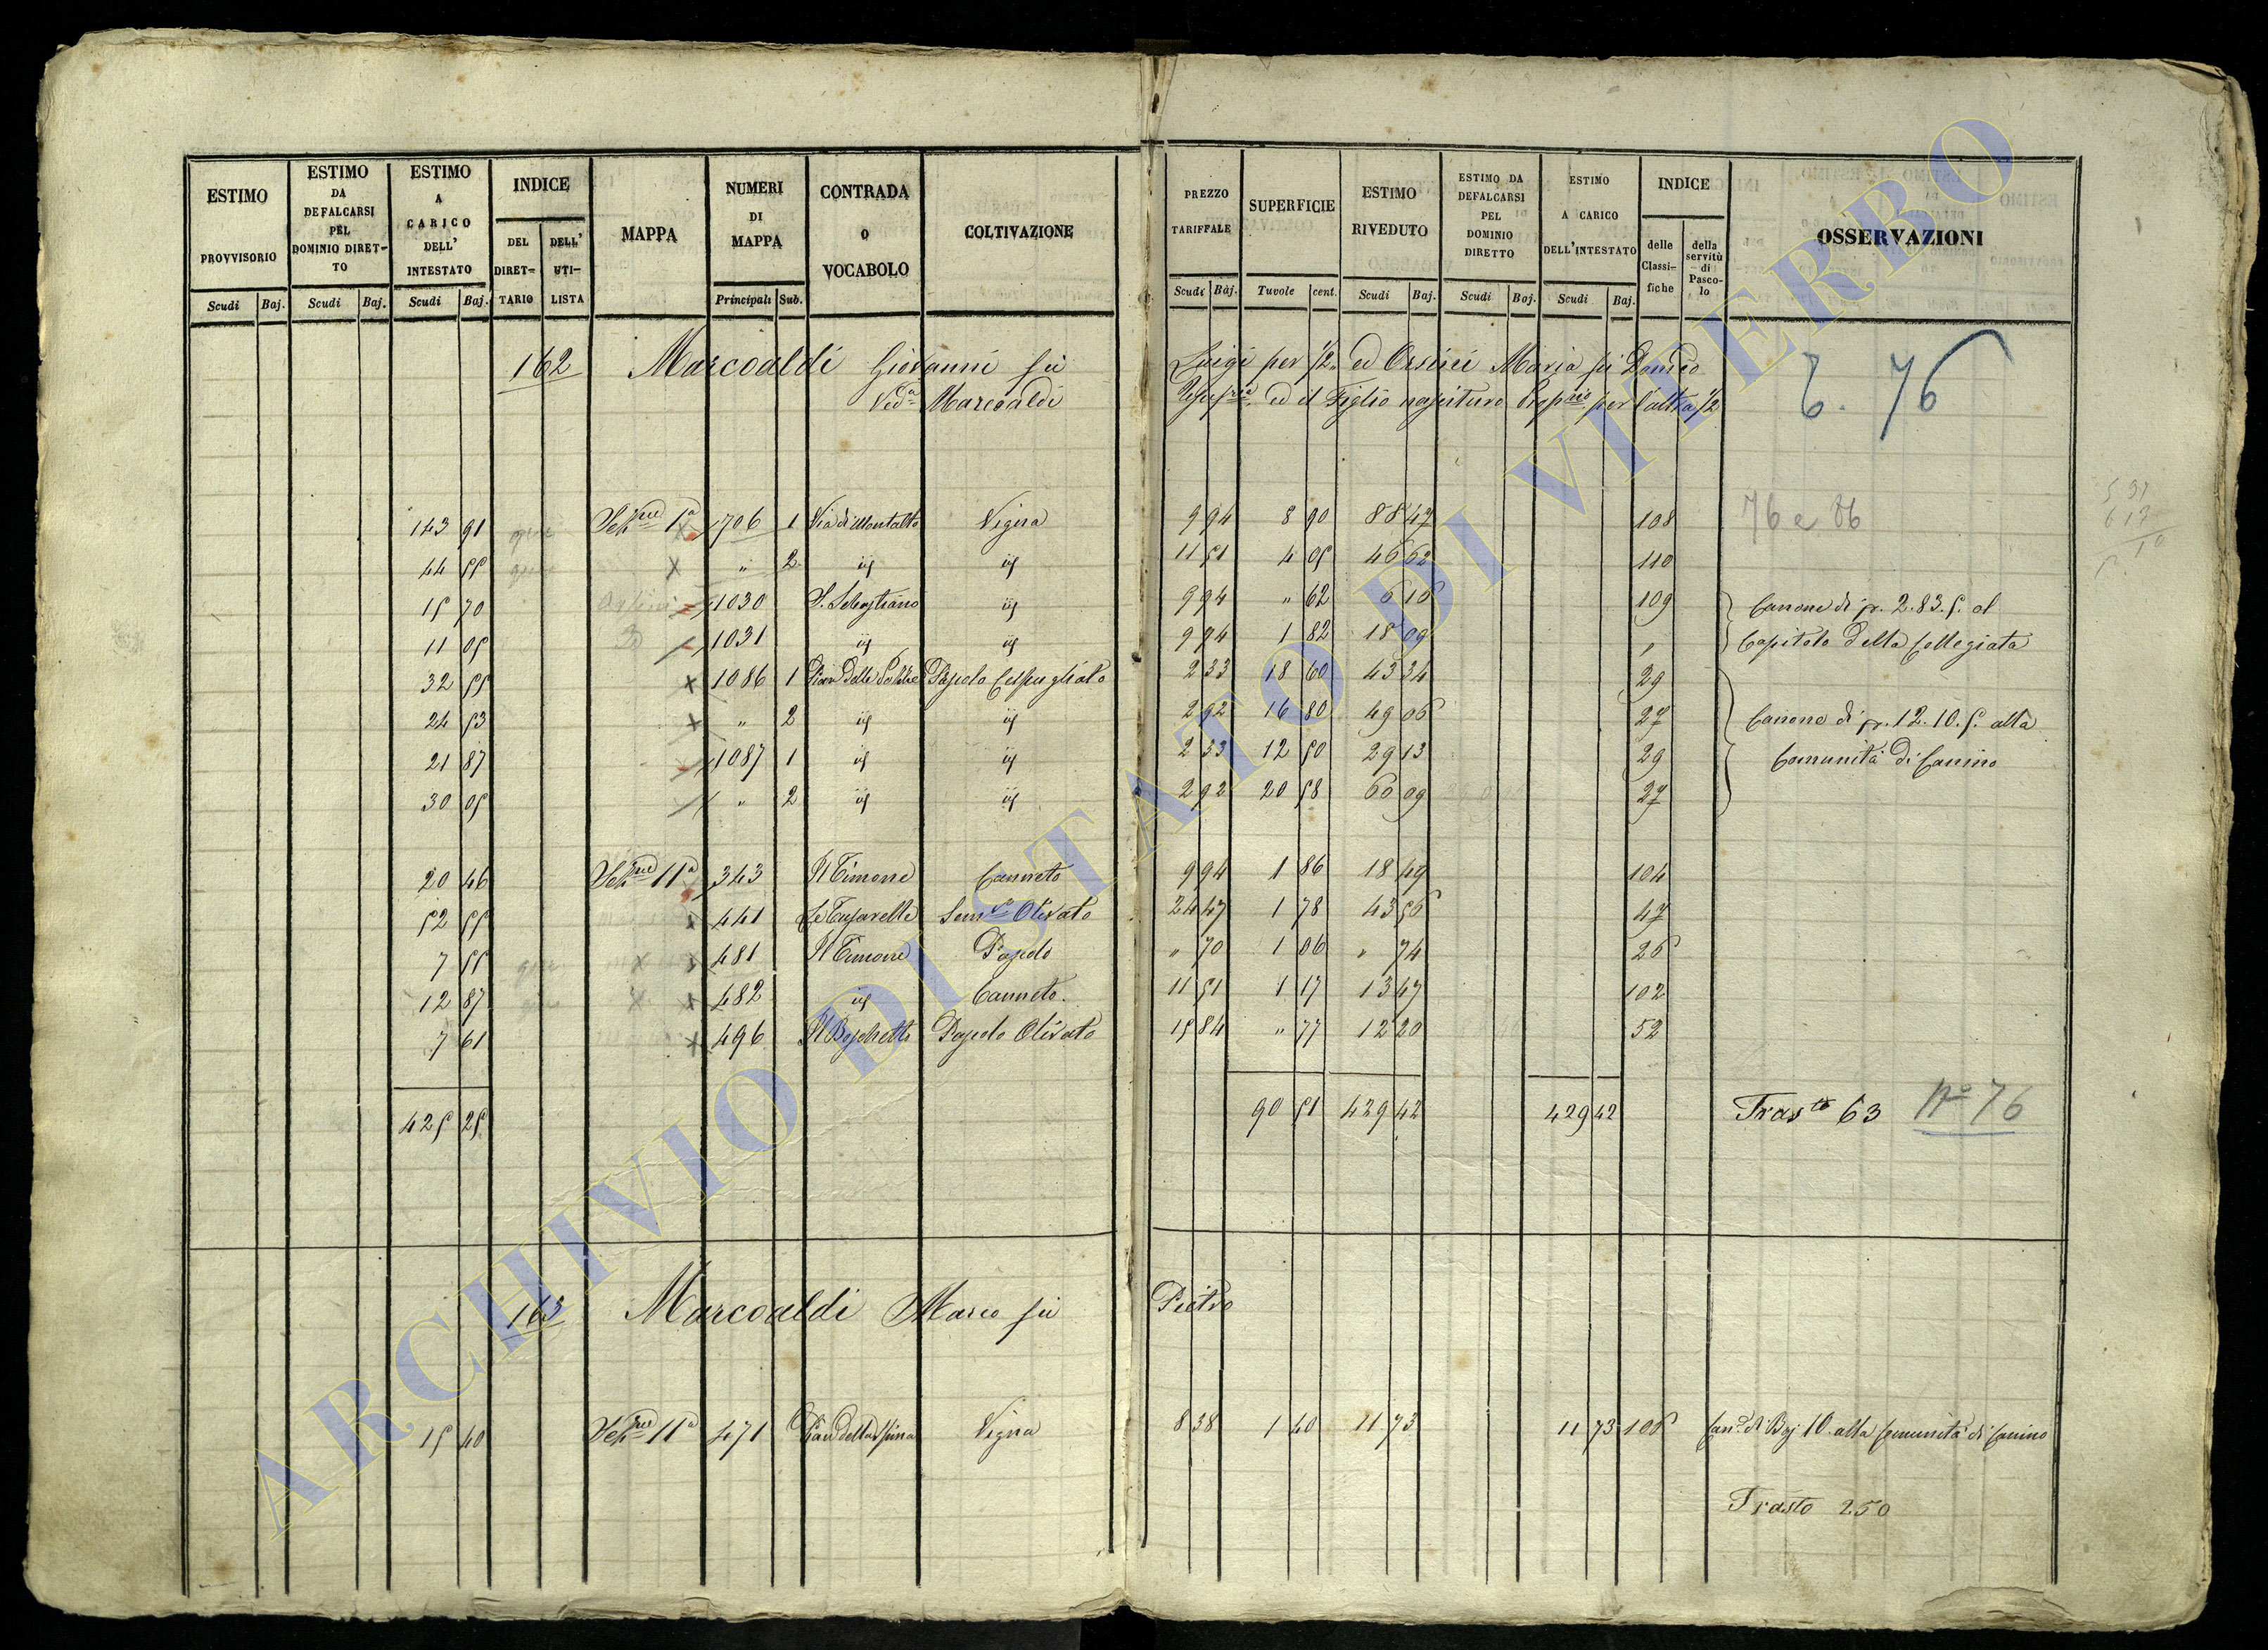 ESTIMO PROVVISORIO | ESTIMO DA DEFALCARSI PEL DOMINIO DIRET-TO | ESTIMO A CARICO DELL' INTESTATO | INDICE DEL DIRET-TARIO | DELL' UTI-LISTA | MAPPA | NUMERI DI MAPPA | CONTRADA O VOCABOLO | COLTIVAZIONE | PREZZO TARIFFALE | SUPERFICIE | ESTIMO RIVEDUTO | ESTIMO DA DEFALCARSI PEL DOMINIO DIRETTO | ESTIMO A CARICO DELL'INTESTATO | INDICE delle Classi-fiche | della servitù di Pasco-lo | OSSERVAZIONI
Scudi Baj. Scudi Baj. Scudi Baj. Principali Sub. Scudi Baj. Tavole cent. Scudi Baj. Scudi Baj. Scudi Baj.
162 Marcoaldi Giovanni fù Luigi per 1/2 ed Orsini Maria fù Domco
Veda Marcoaldi ed il Figlio nascituro per l'altra 1/2
76
143 91 Sezne 1a 706 1 Via di Montalto Vigna 9 94 8 90 88 47 108 76 e 86
44 55 " 2 id id 11 51 4 05 46 62 110
15 70 1030 S. Sebastiano id 9 94 " 62 6 16 109 Canone di 2.83.5. al
11 05 1031 id id 9 94 1 82 18 09 " Capitolo della Collegiata
32 55 1086 1 Pascolo Cespugliato 2 33 18 60 43 34 29
24 53 " 2 id id 2 92 16 80 49 06 27 Canone di 12.10.5. alla
21 87 1087 1 id id 2 33 12 50 29 13 29 Comunità di Canino
30 05 " 2 id id 2 92 20 58 60 09 27
20 46 Sezne 11a 343 Il Timone Canneto 9 94 1 86 18 49 104
52 55 441 Olivato 24 47 1 78 43 56 47
7 55 481 Il Timone Pascolo " 70 1 06 " 74 26
12 87 482 id Canneto. 11 51 1 17 13 47 102
7 61 496 Il Boschetto Pascolo Olivato 15 84 " 77 12 20 52
425 25 90 51 429 42 429 42 Trasto 63 No 76
163 Marcoaldi Marco fù Pietro
15 40 Sezne 11a 471 Pian della Spina Vigna 8 38 1 40 11 73 11 73 106 Cane di Baj 10 alla Comunità di Canino
Trasto 250
ARCHIVIO DI STATO DI VITERBO